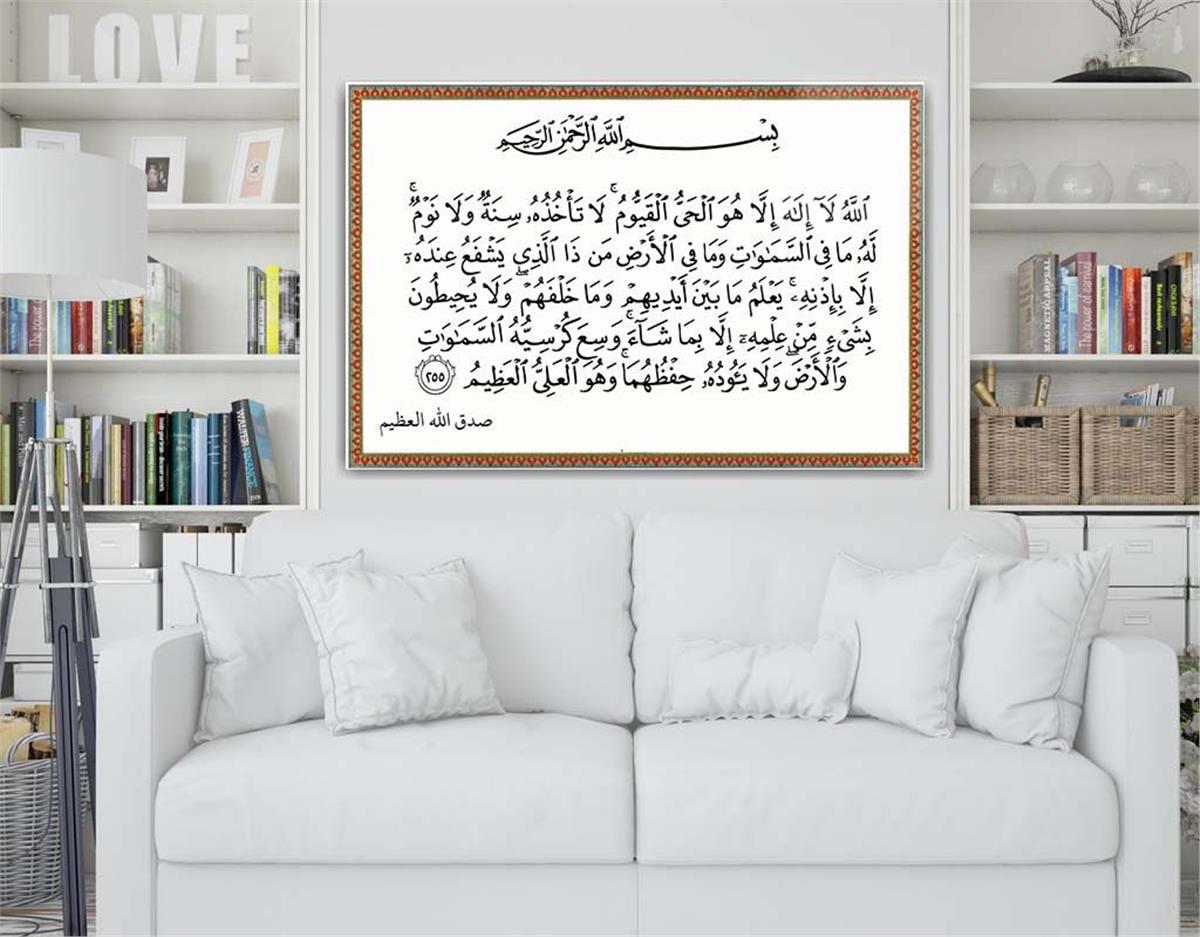 LOVE
بِسْمِ ٱللَّهِ ٱلرَّحْمَٰنِ ٱلرَّحِيمِ
ٱللَّهُ لَآ إِلَٰهَ إِلَّا هُوَ ٱلْحَىُّ ٱلْقَيُّومُ ۚ لَا تَأْخُذُهُۥ سِنَةٌ وَلَا نَوْمٌ ۚ
لَّهُۥ مَا فِى ٱلسَّمَٰوَٰتِ وَمَا فِى ٱلْأَرْضِ مَن ذَا ٱلَّذِى يَشْفَعُ عِندَهُۥٓ
إِلَّا بِإِذْنِهِۦ ۚ يَعْلَمُ مَا بَيْنَ أَيْدِيهِمْ وَمَا خَلْفَهُمْ ۖ وَلَا يُحِيطُونَ
بِشَىْءٍ مِّنْ عِلْمِهِۦٓ إِلَّا بِمَا شَآءَ ۚ وَسِعَ كُرْسِيُّهُ ٱلسَّمَٰوَٰتِ
وَٱلْأَرْضَ ۖ وَلَا يَـُٔودُهُۥ حِفْظُهُمَا ۚ وَهُوَ ٱلْعَلِىُّ ٱلْعَظِيمُ ٢٥٥
صدق الله العظيم
MAGNETIC APPEAL
The power of eternal